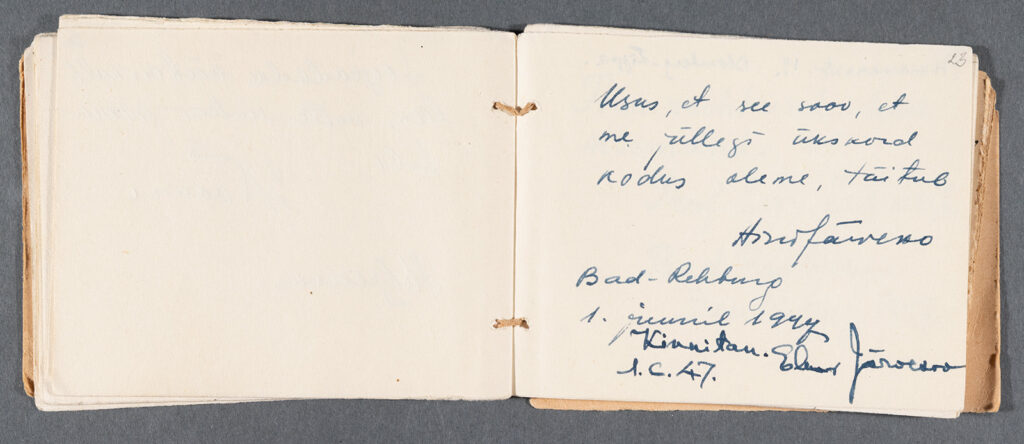 23
Usus, et see soov, et
me jüllegi ükskord
kodus oleme, täitub
Järvesoo
Bad-Rehburg
1. juunil 1947
Kinnitan. Elmar Järvesoo
1.6.47.